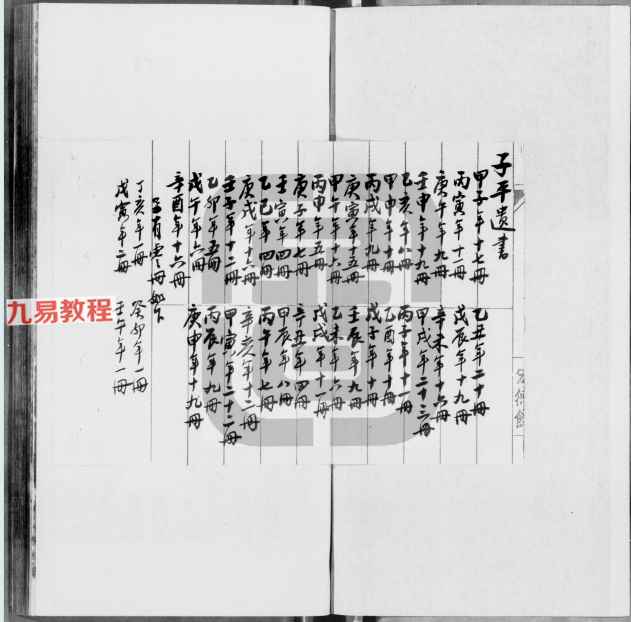 子平遺書
甲子年十七冊 乙丑年二十冊
丙寅年十一冊 戊辰年十九冊
庚午年九冊 辛未年十六冊
壬申年十九冊 甲戌年二十三冊
乙亥年八冊 丙子年十一冊
甲申年十冊 乙酉年十冊
丙戌年九冊 戊子年十冊
庚寅年十五冊 壬辰年九冊
甲午年十六冊 乙未年六冊
丙申年五冊 戊戌年十一冊
庚子年七冊 辛丑年四冊
壬寅年四冊 甲辰年八冊
乙巳年四冊 丙午年七冊
庚戌年十六冊 辛亥年十二冊
壬子年十二冊 甲寅年二十二冊
乙卯年五冊 丙辰年九冊
戊午年六冊 庚申年十九冊
辛酉年十六冊
另有零冊如下
丁亥年一冊 癸卯年一冊
戊寅年二冊 壬午年一冊
九易教程